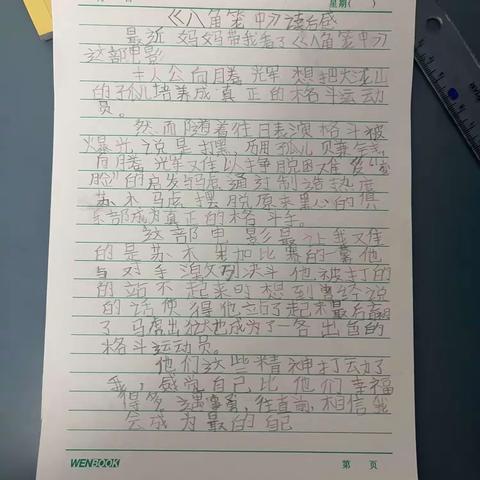 星期( )
《八角笼中》读后感
最近 妈妈带我看了《八角笼中》
这部电影
主人公向腾辉 想把大凉山
的孤儿培养成真正的格斗运动
员。
然而随着往日表演格斗被
爆光 说是打黑, 用孤儿 赚钱,
向腾辉又难以挣脱困难 受“变
脸”的启发 通过制造热度
苏木 马虎 摆脱原来黑心的俱
乐部成为真正的格斗手。
这部电影最让我难
的是苏木参加比赛的一幕他
与对手激烈决斗 他被打的
的站不起来时想到曾经说
的话 使得他站了起来最后
了 马虎出狱也成为了一名出色的
格斗运动员。
他们这些精神打动了
我, 感觉自己比他们幸福
得多 遇事 往直前, 相信我
会成为最的自己
WENBOOK
第 页